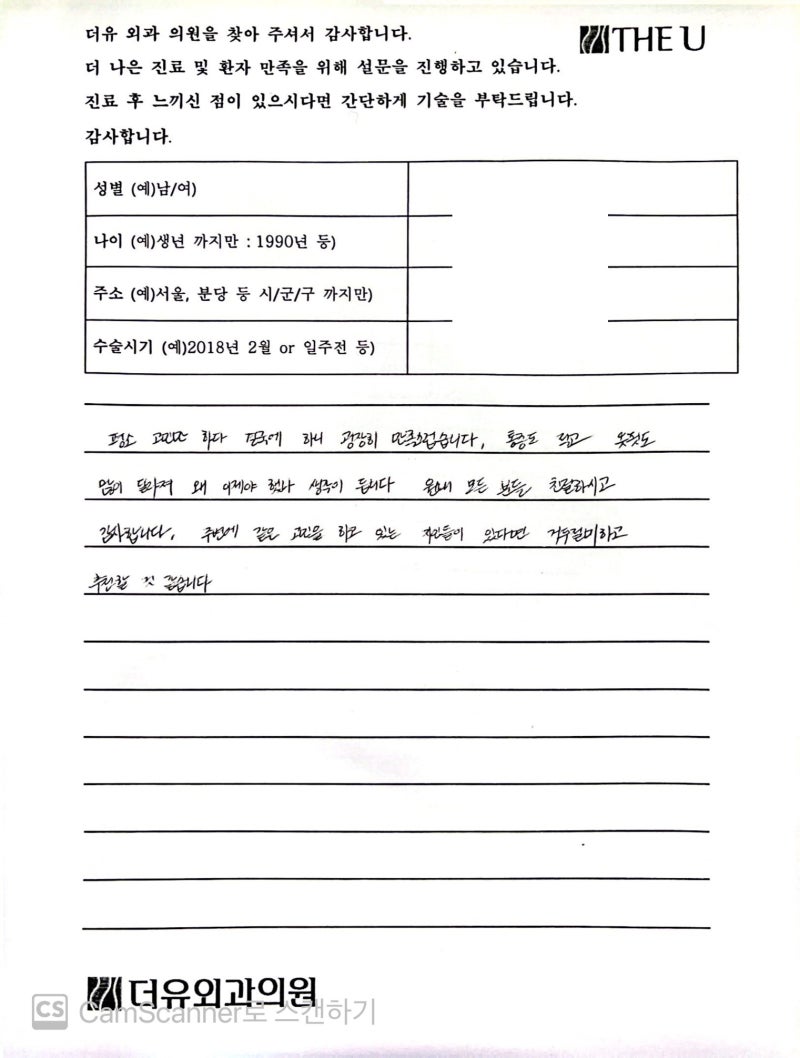 더유 외과 의원을 찾아 주셔서 감사합니다.
THE U
더 나은 진료 및 환자 만족을 위해 설문을 진행하고 있습니다.
진료 후 느끼신 점이 있으시다면 간단하게 기술을 부탁드립니다.
감사합니다.
성별 (예)남/여)
나이 (예)생년 까지만 : 1990년 등)
주소 (예)서울, 분당 등 시/군/구 까지만)
수술시기 (예)2018년 2월 or 일주전 등)
평소 고민만 하다 결국에 하니 굉장히 만족스럽습니다, 통증도 적고 옷핏도
많이 달라져 왜 이제야 했나 생각이 듭니다 원내 모든 분들 친절하시고
감사합니다. 주변에 같은 고민을 하고 있는 지인들이 있다면 거두절미하고
추천할 것 같습니다
더유외과의원
CS CamScanner로 스캔하기